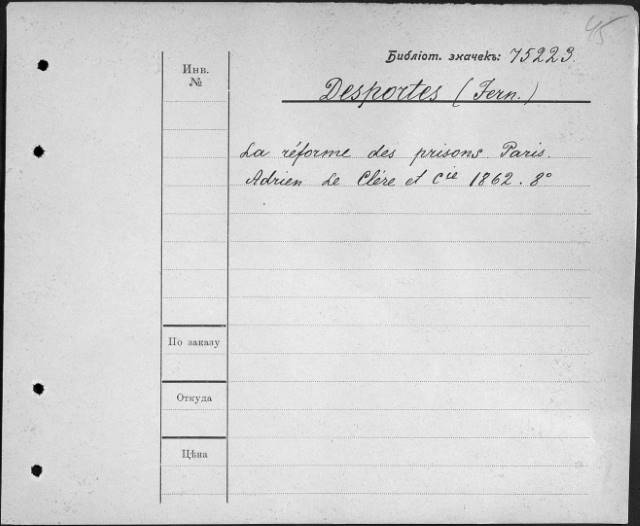 45
Библіот. значекъ: 75223.
Инв.
№
Desportes (Fern.)
La réforme des prisons. Paris.
Adrien Le Clère et Cie 1862. 8°
По заказу
Откуда
Цѣна